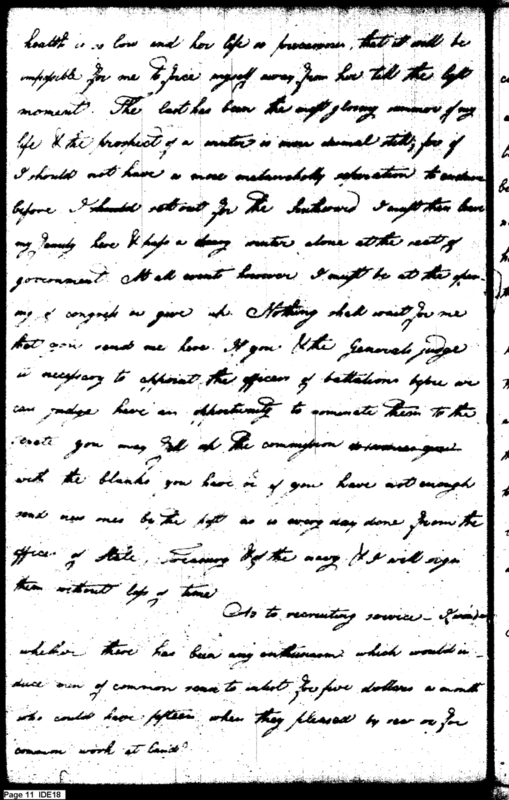 health is so low and her life so precarious, that it will be
impossible for me to force myself away from her till the last
moment. The last has been the most gloomy summer of my
life & the prospect of a winter is more dismal still, for if
I should not have a more melancholly seperation to endure
before I should set out for the Southward I must then leave
my family here & pass a winter alone at the seat of
government At all events however I must be at the open-
ing of congress or give up. Nothing shall wait for me
that you send me here. If you & the Generals judge
it necessary to appoint the officers of battalions before we
can have an opportunity to nominate them to the
senate you may fill up the commission
with the blanks you have or if you have not enough
send new ones by the post as is every day done from the
offices of State, treasury & of the navy & I will sign
them without loss of time
As to recruiting service - I wonder
whether there has been any enthusiasm which would in-
duce men of common sense to inlist for five dollars a month
who could have fifteen when they pleased by sea or for
common work at land
Page 11 IDE18